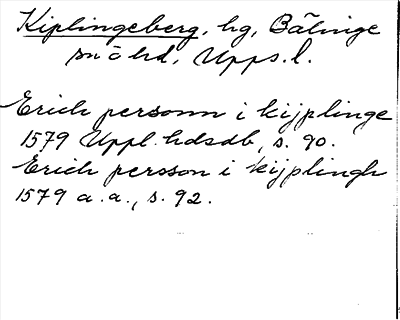 Kiplingeberg, hg, Bälinge
sn o hd, Upps. l.
Erich personn i kijplinge
1579 Uppl. hdsdb, s. 90.
Erich persson i kijplingh
1579 a. a., s. 92.